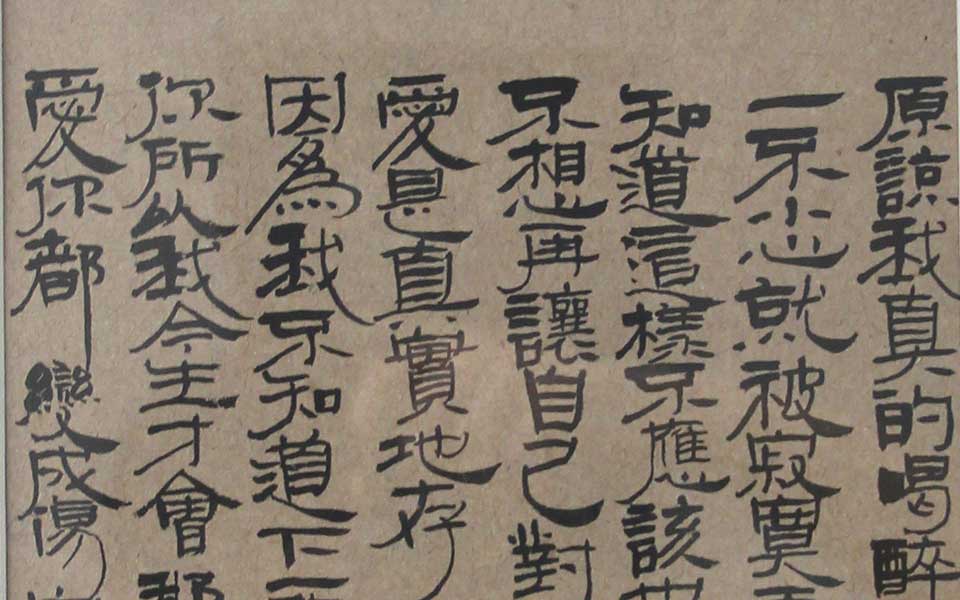 原諒我真的喝醉
一不小心就被寂寞
知道這樣不應該
不想再讓自己對
愛是真實地存
因為我不知道下一
你所以我今生才會
愛你都變成傷